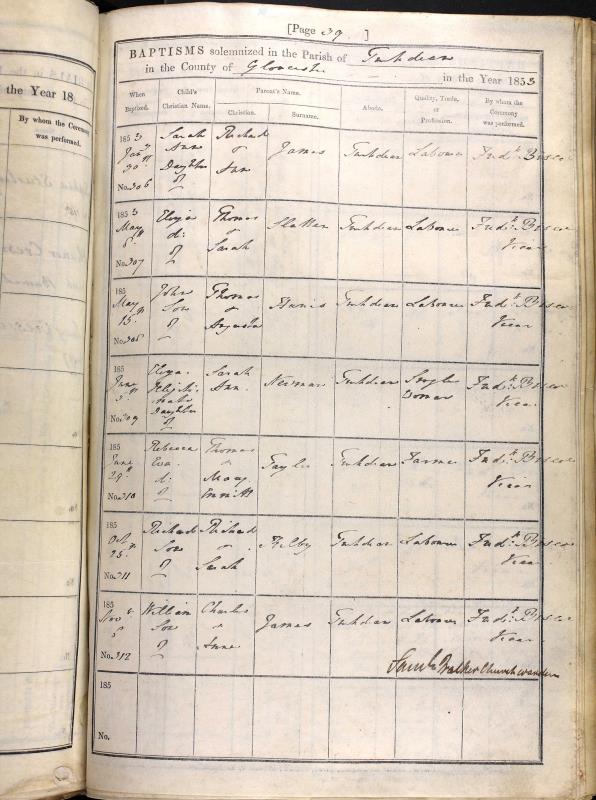 [Page 39 ]
BAPTISMS solemnized in the Parish of Turkdean
in the County of Gloucester in the Year 1853
When Baptized. Child's Christian Name. Parent's Name. Christian. Surname. Abode. Quality, Trade, or Profession. By whom the Ceremony was performed.
1853 Jany 30th No. 306 Sarah Ann Daughter of Richard & Ann James Turkdean Labourer Fredk. Biscoe
1853 May 8th No. 307 Eliza d: of Thomas & Sarah Slatter Turkdean Labourer Fredk. Biscoe Vicar
185 May 15th No. 308 John Son of Thomas & Augusta Turkdean Labourer Fredk. Biscoe Vicar
185 June No. 309 Eliza Daughter of Sarah Ann Newman Turkdean Single Woman Fredk. Biscoe Vicar
185 June 29th No. 310 Rebecca Eva d: of Thomas & Mary Taylor Turkdean Farmer Fredk. Biscoe Vicar
185 Oct 25th No. 311 Richard Son of Richard & Sarah Turkdean Labourer Fredk. Biscoe Vicar
185 Novr No. 312 William Son of Charles & Anne James Turkdean Labourer Fredk. Biscoe Vicar
Saml Walker Churchwarden
185
No.
the Year 18
By whom the Ceremony
was performed.